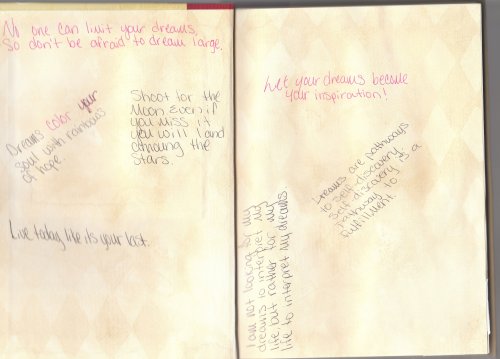 No one can limit your dreams
So don't be afraid to dream large,
Dreams color your
soul with rainbows
of hope.
Shoot for the
Moon Even if
you miss it
you will land
among the
stars.
Live today, like its your last.
Let your dreams become
your inspiration!
Dreams are pathways
to self discovery.
self discovery is a
pathway to
fulfillment.
I am not looking for my
dreams to interpret my
life but rather for my
life to interpret my dreams.